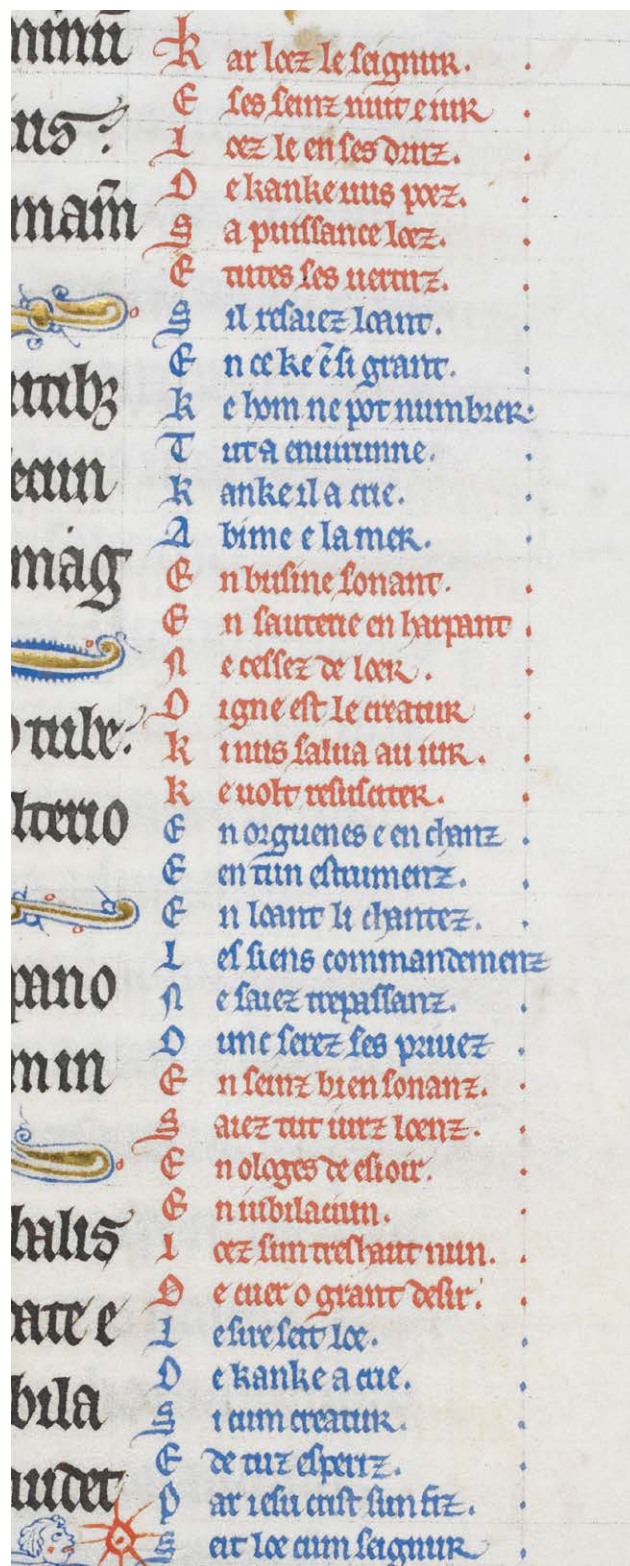 minu͂
K ar loez le seignur.
E ses seinz nuit e iur
ius:
L oez le en ses druz.
D e kanke uus poez.
nam̃
S a puissance loez.
E tutes ses uertuz.
S il resaiez loant.
E n ce ke ẽ si grant.
K e hom ne pot numbrer.
T ut a enuirunne.
ecun
K anke il a crie.
A bime e la mer.
mag
E n busine sonant.
E n sauterie en harpant.
N e cessez de loer.
D igne est le creatur
o tube:
K i nus salua au iur.
K e uolt resusciter.
lterio
E n orguenes e en chanz.
E en tũn estrumenz.
E n loant li chantez.
L es siens commandemenz
pano
N e saiez trepassanz.
D unc serez ses priuez.
m in
E n seinz bien sonanz.
S aiez tut iurz loenz.
E n ologes de esioir.
E n iubilaciun.
balis
L oez sun treshaut nun.
D e cuer o grant desir.
ate e
L e sire seit loe.
D e kanke a crie.
bila
S i cum creatur.
E de tuz esperiz.
udet
P ar iesu crist sun fiz.
S eit loe cum seignur.